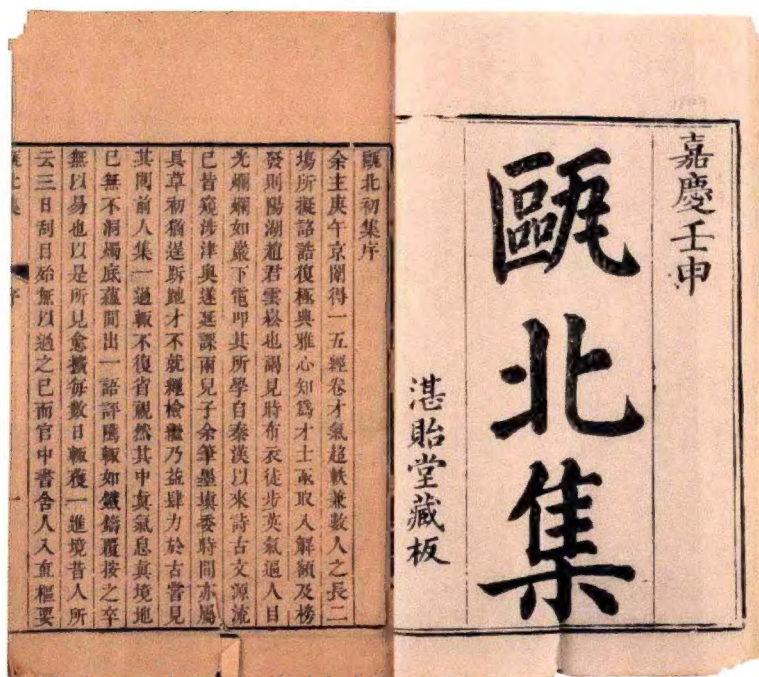 嘉慶壬申
甌北集
湛貽堂藏板
甌北初集序
余主庚午京闈得一五經卷才氣超軼兼數人之長二
塲所擬詔誥復極典雅心知爲才士亟取入解額及榜
發則陽湖趙君雲崧也謁見時布衣徒步英氣逼人目
光爛爛如巖下電叩其所學自秦漢以來詩古文源流
已皆窺涉津奥遂延課兩兒子余筆墨填委時間亦屬
具草初猶逞跅弛才不就繩檢繼乃益肆力於古嘗見
其閱前人集一過輒不復省視然其中眞氣息眞境地
已無不洞燭底蘊間出一語評騭輒如鐵鑄覆按之卒
無以易也以是所見愈擴每數日輒獲一進境昔人所
云三日刮目殆無以過之已而官中書舍人入直樞要
甌北集
序
一